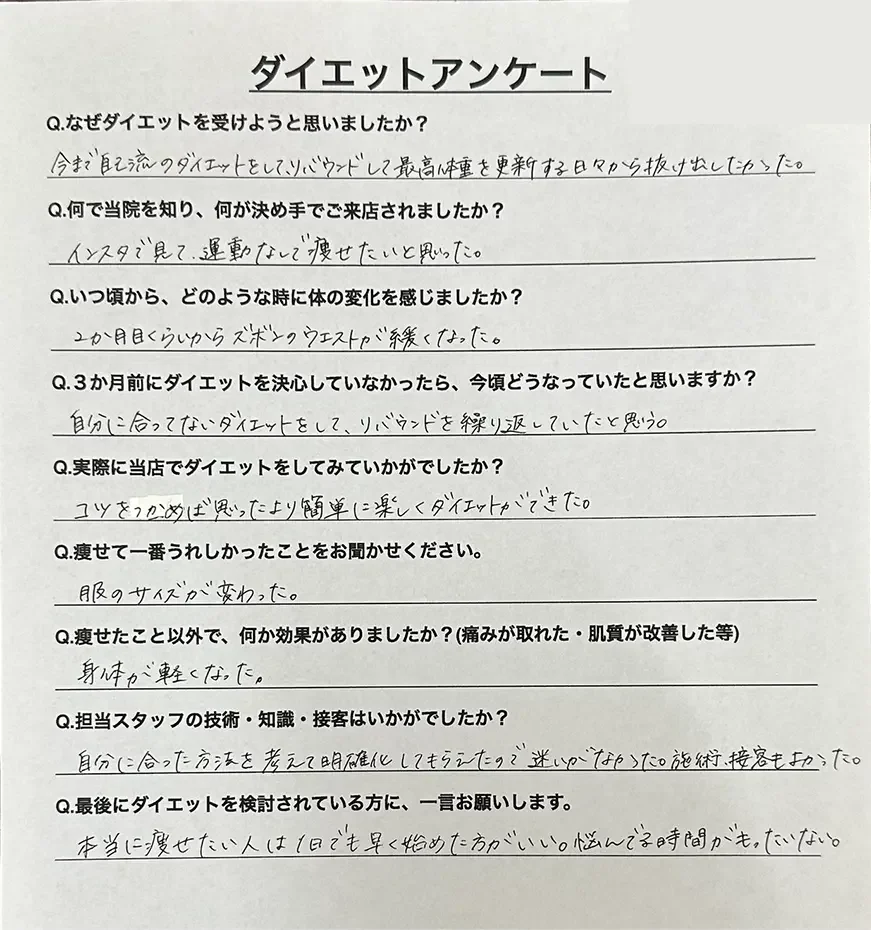 ダイエットアンケート
Q.なぜダイエットを受けようと思いましたか？
今まで自己流のダイエットをして、リバウンドして最高体重を更新する日々から抜け出したかった。
Q.何で当院を知り、何が決め手でご来店されましたか？
インスタで見て、運動なしで痩せたいと思った。
Q.いつ頃から、どのような時に体の変化を感じましたか？
2か月目くらいからズボンのウエストが緩くなった。
Q.３か月前にダイエットを決心していなかったら、今頃どうなっていたと思いますか？
自分に合ってないダイエットをして、リバウンドを繰り返していたと思う。
Q.実際に当店でダイエットをしてみていかがでしたか？
コツをつかめば思ったより簡単に楽しくダイエットができた。
Q.痩せて一番うれしかったことをお聞かせください。
服のサイズが変わった。
Q.痩せたこと以外で、何か効果がありましたか？(痛みが取れた・肌質が改善した等)
身体が軽くなった。
Q.担当スタッフの技術・知識・接客はいかがでしたか？
自分に合った方法を考えて明確化してもらえたので迷いがなかった。施術、接客もよかった。
Q.最後にダイエットを検討されている方に、一言お願いします。
本当に痩せたい人は1日でも早く始めた方がいい。悩んでる時間がもったいない。